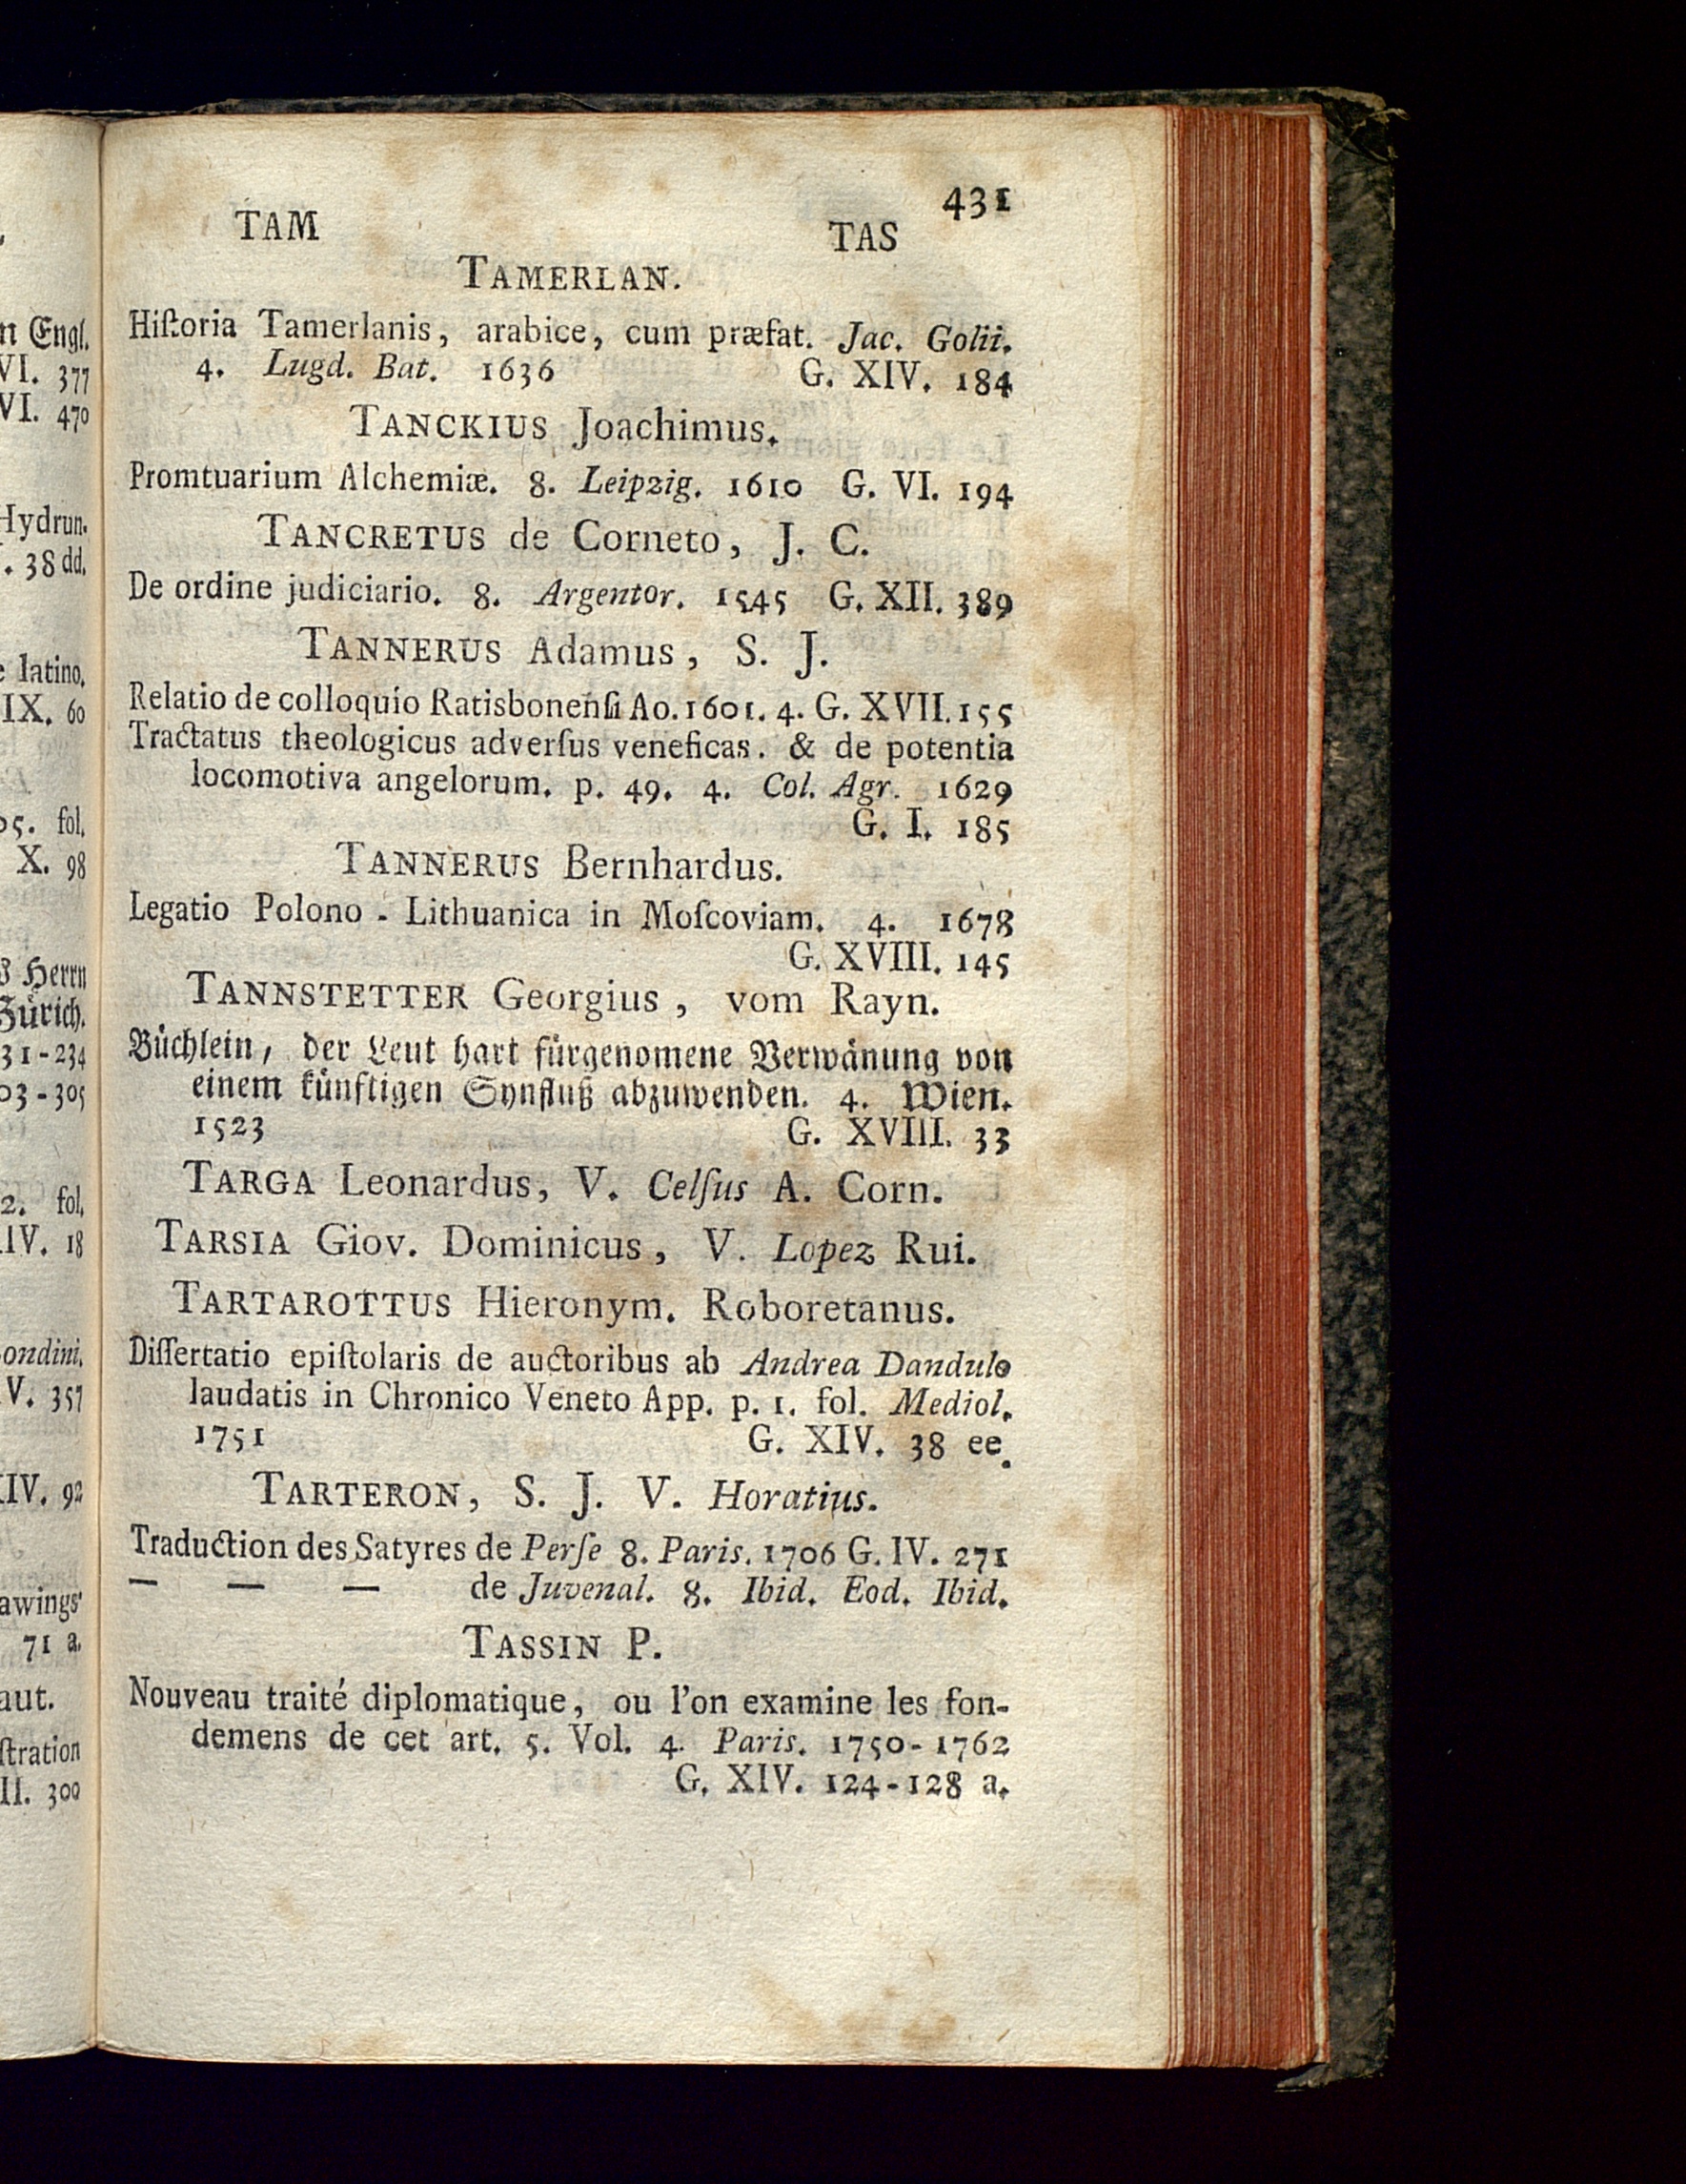 431
TAM TAS
TAMERLAN.
Hiſtoria Tamerlanis, arabice, cum præfat. Jac. Golii.
4. Lugd. Bat. 1636 G. XIV. 184
TANCKIUS Joachimus.
Promtuarium Alchemiæ. 8. Leipzig. 1610 G. VI. 194
TANCRETUS de Corneto, J. C.
De ordine judiciario. 8. Argentor. 1545 G. XII. 389
TANNERUS Adamus, S. J.
Relatio de colloquio Ratisbonenſi Ao. 1601. 4. G. XVII. 155
Tractatus theologicus adverſus veneficas. & de potentia
locomotiva angelorum. p. 49. 4. Col. Agr. 1629
G. I. 185
TANNERUS Bernhardus.
Legatio Polono - Lithuanica in Moſcoviam. 4. 1678
G. XVIII. 145
TANNSTETTER Georgius, vom Rayn.
Büchlein, der Leut hart fürgenomene Verwänung von
einem künftigen Synfluß abzuwenden. 4. Wien.
1523 G. XVIII. 33
TARGA Leonardus, V. Celſus A. Corn.
TARSIA Giov. Dominicus, V. Lopez Rui.
TARTAROTTUS Hieronym. Roboretanus.
Diſſertatio epiſtolaris de auctoribus ab Andrea Dandulo
laudatis in Chronico Veneto App. p. 1. fol. Mediol.
1751 G. XIV. 38 ee.
TARTERON, S. J. V. Horatius.
Traduction des Satyres de Perſe 8. Paris. 1706 G. IV. 271
— — — de Juvenal. 8. Ibid. Eod. Ibid.
TASSIN P.
Nouveau traité diplomatique, ou l'on examine les fon-
demens de cet art. 5. Vol. 4. Paris. 1750-1762
G. XIV. 124-128 a.